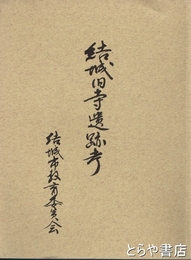 結城旧寺遺跡考
結城市教育委員会
とらや書店